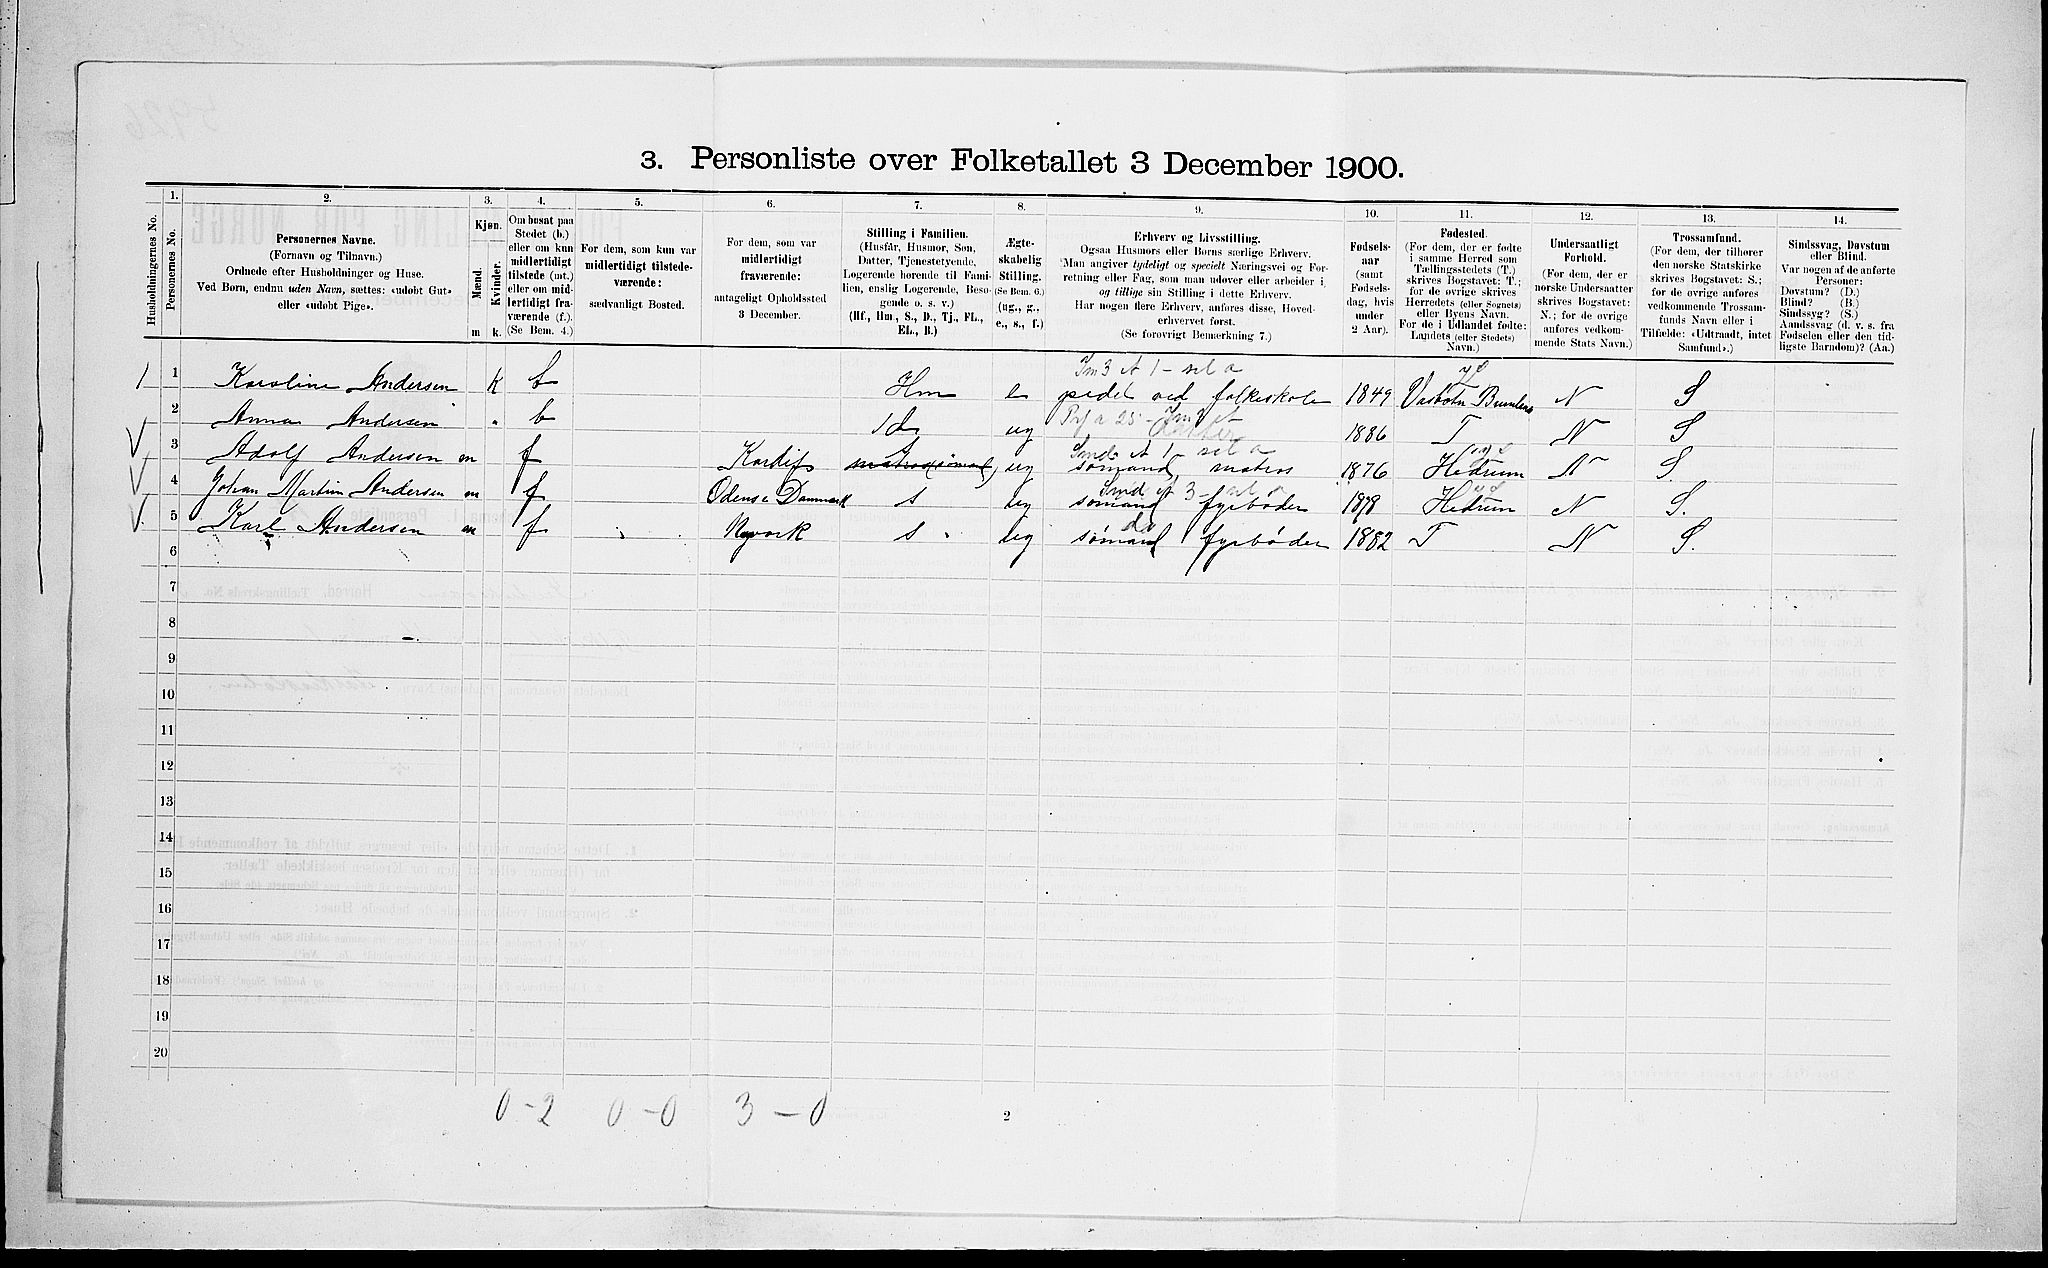 3. Personliste over Folketallet 3 December 1900.
1. 2. 3. 4. 5. 6. 7. 8. 9. 10. 11. 12. 13. 14.
Husholdningernes No.
Personernes No.
Personernes Navne.
(Fornavn og Tilnavn.)
Ordnede efter Husholdninger og Huse.
Ved Børn, endnu uden Navn, sættes: «udøbt Gut»
eller «udøbt Pige».
Kjøn.
Mænd.
Kvinder.
m k.
Om bosat paa
Stedet (b.)
eller om kun
midlertidigt
tilstede (mt.)
eller om mid-
lertidigt fra-
værende (f.).
(Se Bem. 4.)
For dem, som kun var
midlertidigt tilstede-
værende:
sædvanligt Bosted.
For dem, som var
midlertidigt
fraværende:
antageligt Opholdssted
3 December.
Stilling i Familien.
(Husfar, Husmor, Søn,
Datter, Tjenestetyende,
Logerende hørende til Fami-
lien, enslig Logerende, Besø-
gende o. s. v.)
(Hf., Hm., S., D., Tj., FL.,
EL., B.)
Ægte-
skabelig
Stilling.
(Se Bem. 6.)
(ug., g.,
e., s., f.)
Erhverv og Livsstilling.
Ogsaa Husmors eller Børns særlige Erhverv.
Man angiver tydeligt og specielt Næringsvei og For-
retning eller Fag, som man udøver eller arbeider i,
og tillige sin Stilling i dette Erhverv.
Har nogen flere Erhverv, anføres disse, Hoved-
erhvervet først.
(Se forøvrigt Bemærkning 7.)
Fødsels-
aar
(samt
Fødsels-
dag, hvis
under
2 Aar).
Fødested.
(For dem, der er fødte
i samme Herred som
Tællingsstedets (T.)
skrives Bogstavet: T.;
for de øvrige skrives
Herredets (eller Sognets)
eller Byens Navn.
For de i Udlandet fødte:
Landets (eller Stedets)
Navn.)
Undersaatligt
Forhold.
(For dem, der er
norske Undersaatter
skrives Bogstavet:
N.; for de øvrige
anføres vedkom-
mende Stats Navn.)
Trossamfund.
(For dem, der tilhører
den norske Statskirke
skrives Bogstavet: S.;
for de øvrige anføres
vedkommende Trossam-
funds Navn eller i
Tilfælde: «Udtraadt, intet
Samfund».)
Sindssvag, Døvstum
eller Blind.
Var nogen af de anførte
Personer:
Døvstum? (D.)
Blind? (B.)
Sindssyg? (S.)
Aandssvag (d. v. s. fra
Fødselen eller den tid-
ligste Barndom)? (Aa.)
1 1 Karoline Andersen k b Hm e pedel ved folkeskole 1849 N S
2 Anna Andersen " b d ug 1886 T N S
3 Adolf Andersen m f Kardif S ug sømand, matros 1876 Hedrum N S.
4 Johan Martin Andersen m f Odense Danmark s ug sømand fyrbøder 1878 Hedrum N S.
5 Karl Andersen m f Nyork s ug sømand fyrbøder 1882 T N S.
6
7
8
9
10
11
12
13
14
15
16
17
18
19
20
0 - 2 0 - 0 3 - 0
2